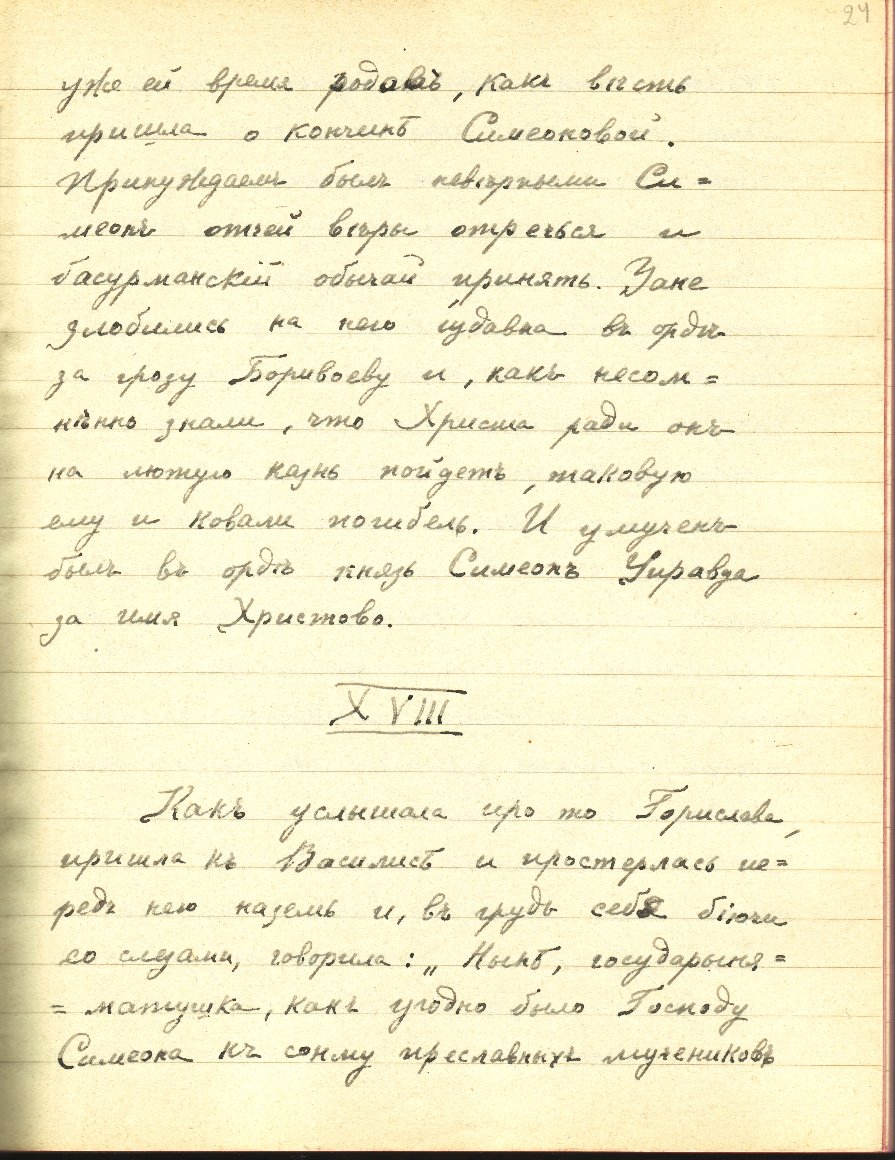 24
уже ей время родовъ, какъ вѣсть
пришла о кончинѣ Симеоновой.
Принуждаемъ былъ невѣрными Си=
меонъ отчей вѣры отречься и
басурманскій обычай принять. Зане
злобились на него издавна въ ордѣ
за грозу Боривоеву и, какъ несом=
нѣнно знали, что Христа ради онъ
на лютую казнь пойдетъ, таковую
ему и ковали погибель. И умученъ
былъ въ ордѣ князь Симеонъ Управда
за имя Христово.
XVIII
Какъ услышала про то Горислава,
пришла къ Василисѣ и простерлась пе=
редъ нею наземь и, въ грудь себя біючи
со слезами, говорила: „Нынѣ, государыня=
=матушка, какъ угодно было Господу
Симеона къ сонму преславныхъ мучениковъ